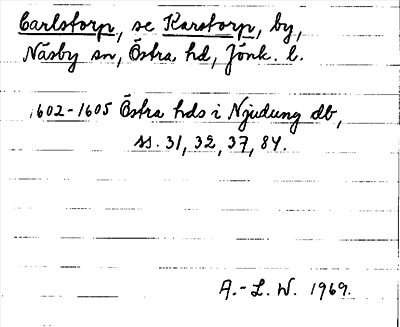 Carlstorp, se Karstorp, by,
Näsby sn, Östra hd, Jönk. l.
1602-1605 Östra hds i Njudung db,
ss. 31, 32, 37, 84.
A.-L. W. 1969.